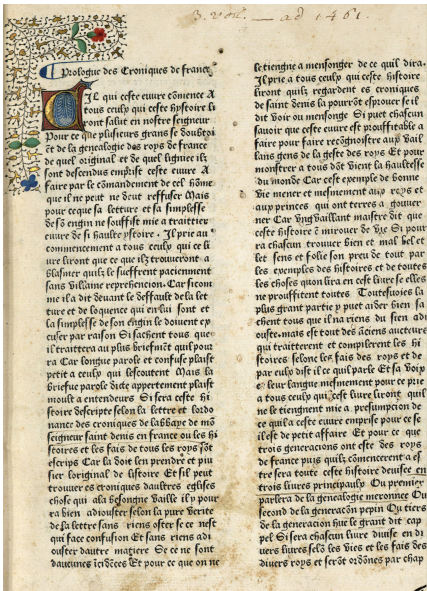 3. vol. — ad 1461.
Prologue des Croniques de france
Cil qui ceste euure cõmence A
tous ceulx qui ceste hystoire li
ront salut en nostre seigneur
Pour ce que plusieurs grans se doubtoi
ẽt de la genealogie des roys de france
de quel original et de quel ligniee ilz
sont descendus emprist ceste euure A
faire par le cõmandement de cel hõme
que il ne peut ne deut reffuser Mais
pour ceque sa letture et sa simplesse
de sõ engin ne souffist mie a traittier
euure de si haulte ystoire. Il prie au
commencement a tous ceulx qui ce li
ure liront que ce que ilz trouueront a
blasmer quilz le sueffrent paciemment
sans villaine reprehencion. Car sicom
me il a dit deuant le deffaulte de la let
ture et de loquence qui en lui sont et
la simplesse de son engin le doiuent ex
cuser par raison Si sachent tous que
il traittera au plus briefmẽt quil pour
ra Car longue parole et confuse plaist
petit a ceulx qui lescoutent Mais la
briefue parole dicte appertement plaist
moult a entendeurs Si sera ceste hi
stoire descripte selon la lettre et lordo
nance des croniques de labbaye de mõ
seigneur saint denis en france ou les hi
stoires et les fais de tous les roys sõt
escrips Car la doit len prendre et pui
sier loriginal de listoire Et sil peut
trouuer es croniques daultres eglises
chose qui ala besongne vaille il y pour
ra bien adiouster selon la pure verite
de la lettre sans riens oster se ce nest
qui face confusion Et sans riens adi
ouster dautre matiere Se ce ne sont
daucunes ĩcidẽces Et pour ce que on ne
le tiengne a mensonger de ce quil dira.
Il prie a tous ceulx qui ceste histoire
liront quilz regardent es croniques
de saint denis la pourrõt esprouuer se il
dit voir ou mensonge Si puet chascun
sauoir que ceste euure est prouffitable a
faire pour faire recõgnoistre aux vail
lans gens de la geste des roys Et pour
monstrer a tous dõt vient la haultesse
du monde Car cest exemple de bonne
vie mener et mesmement aux roys et
aux princes qui ont terres a gouuer
ner Car vng vaillant maistre dit que
ceste histoire ẽ mirouer de vie. Si pour
ra chascun trouuer bien et mal bel et
let sens et folie son preu de tout par
les exemples des histoires et de toutes
les choses quon lira en cest liure se elles
ne prouffitent toutes. Touteuoies la
plus grant partie y puet aider bien sa
chent tous que il na riens du sien adi
ouste. mais est tout des ãciens aucteurs
qui traitterent et compilerent les hi
stoires selonc les fais des roys et de
par eulx dist il ce quil parle Et sa voix
e leur langue mesmement pour ce prie
a tous ceulx qui cest liure liront quil
ne le tiengnent mie a presumpcion de
ce quil a ceste euure emprise pour ce se
il est de petit affaire Et pour ce que
trois generacions ont este des roys
de france puis quilz cõmencerent a es
tre sera toute ceste histoire deuisee en
trois liures principaulx Ou premier
parlera de la genealogie meronnee Ou
second de la generacõn pepin Ou tiers
de la generacion hue le grant dit cap
pel Si sera chascun liure diuise en di
uers liures selõs les vies et les fais des
diuers roys et serõt ordõnes par chap